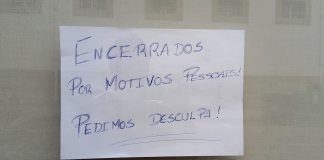 ENCERRADOS
POR MOTIVOS PESSOAIS!
PEDIMOS DESCULPA!